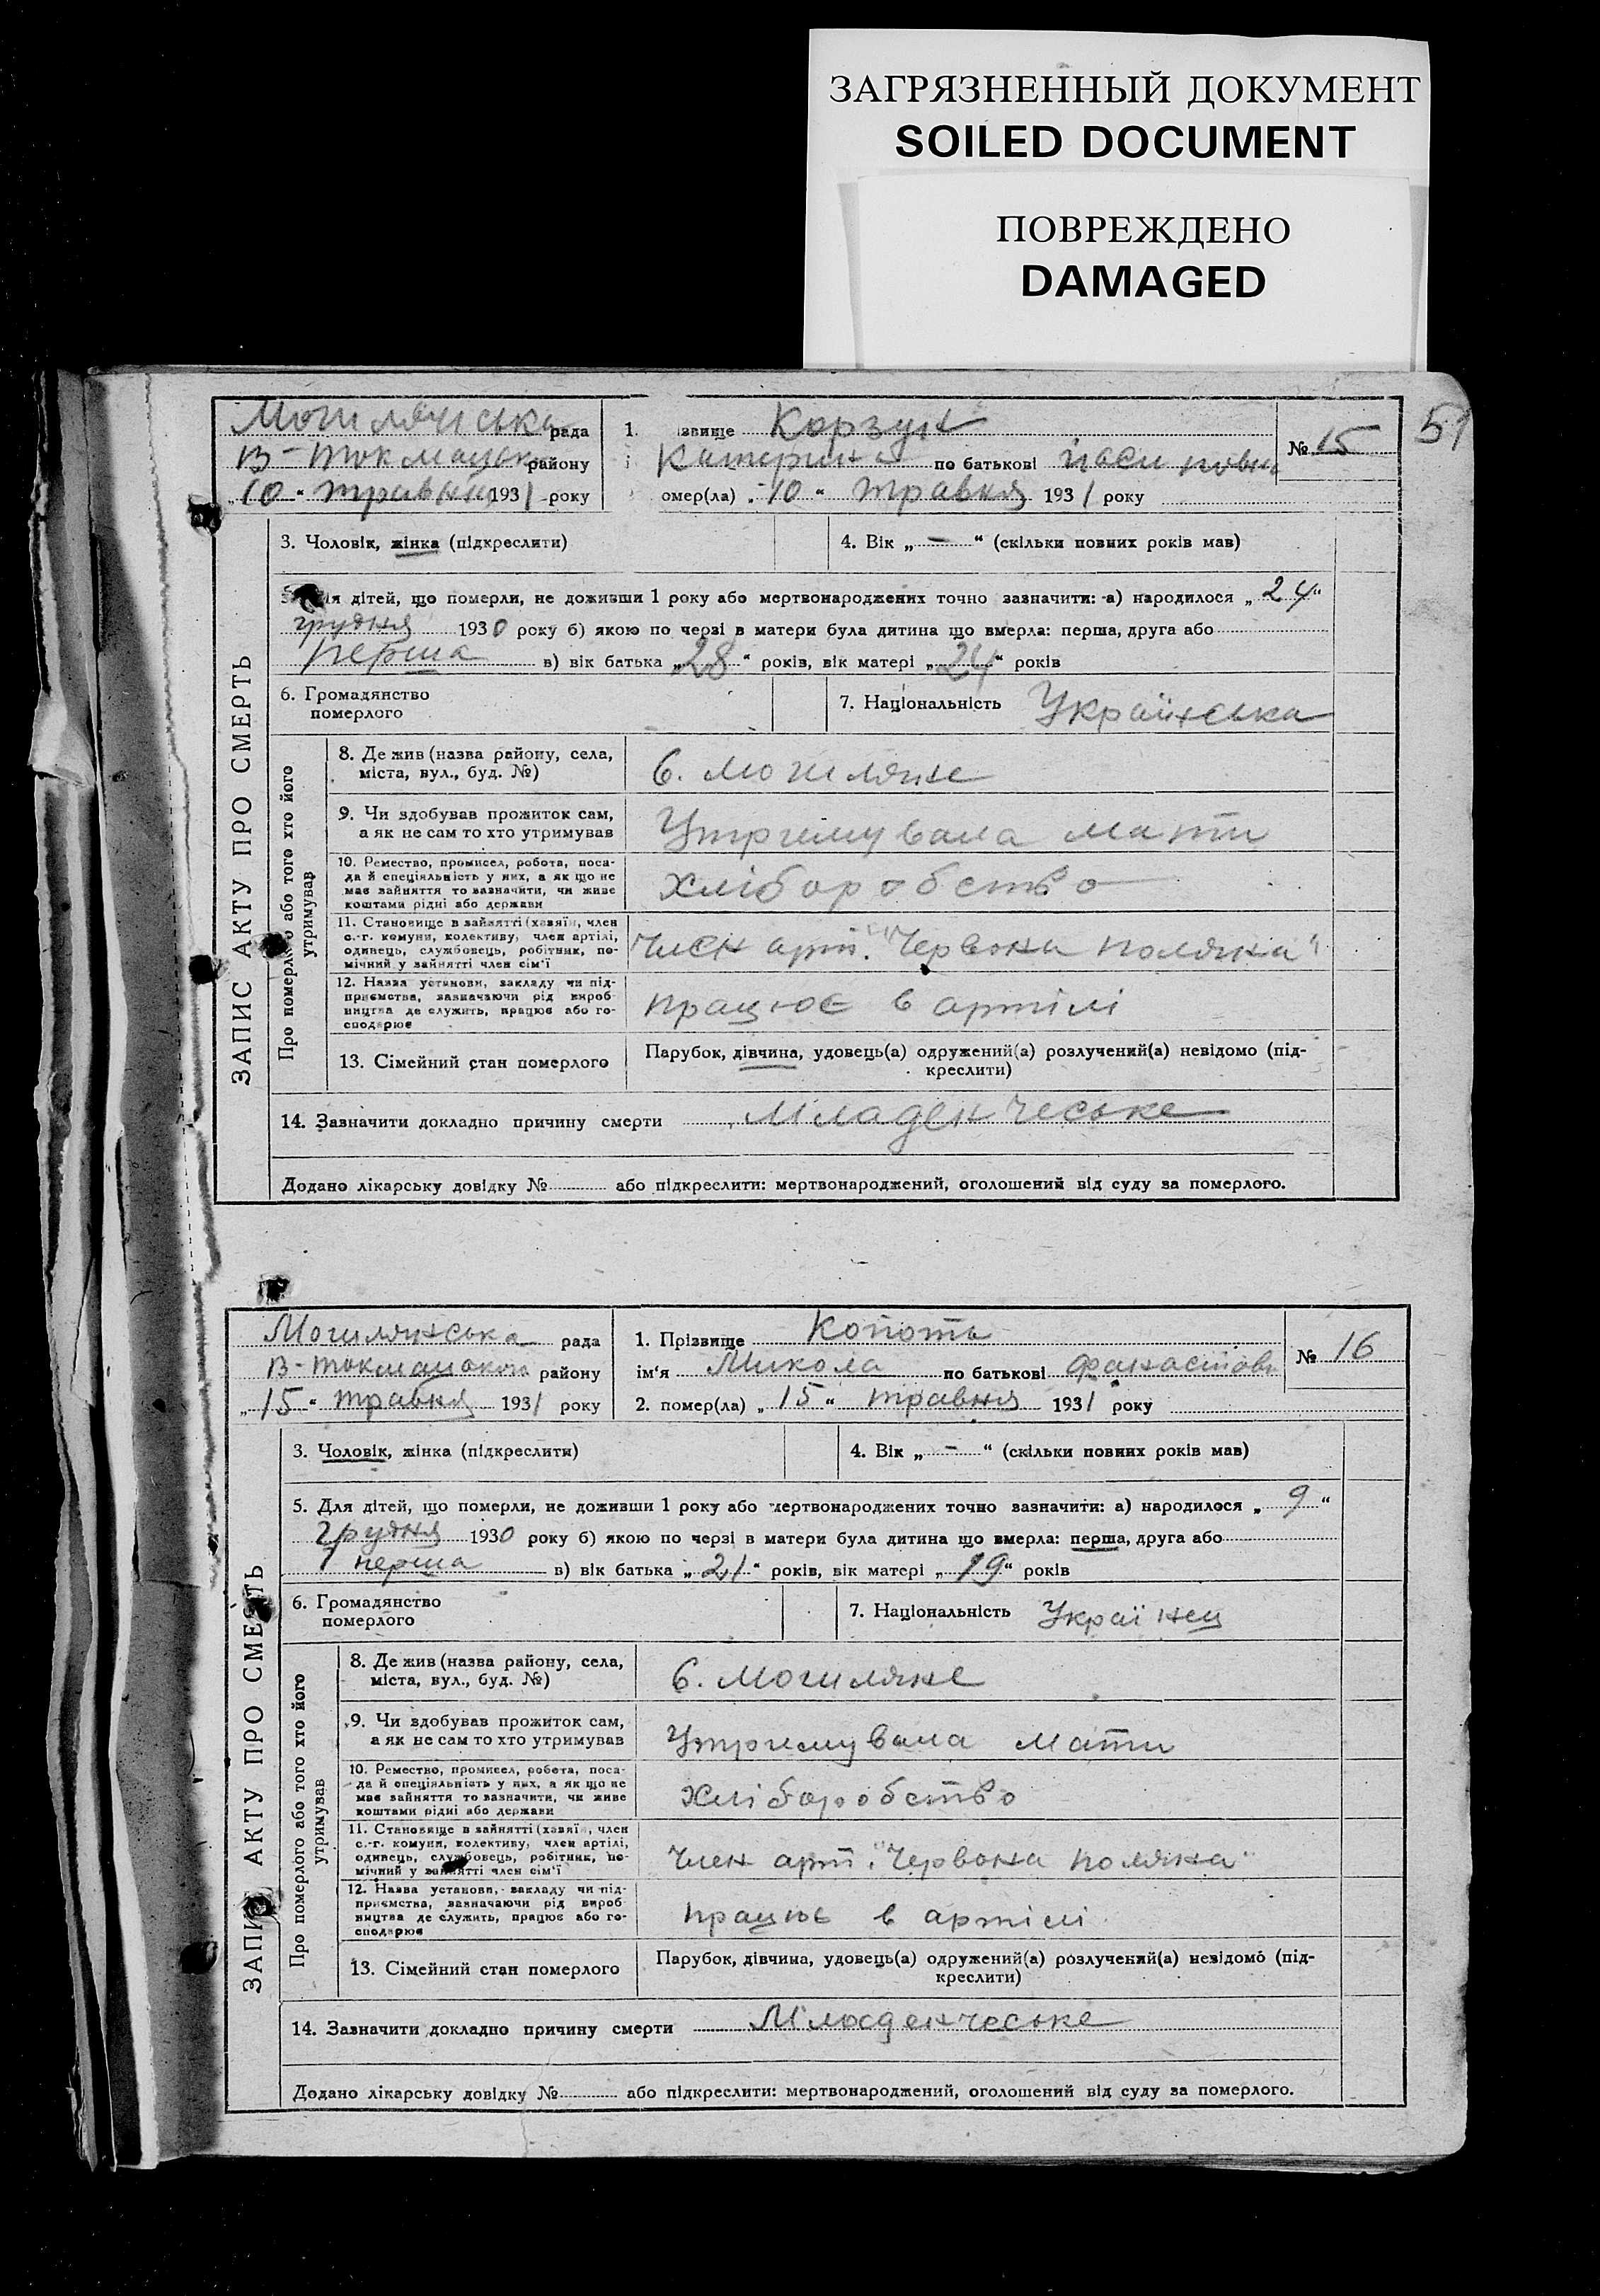 ЗАГРЯЗНЕННЫЙ ДОКУМЕНТ
SOILED DOCUMENT
ПОВРЕЖДЕНО
DAMAGED
51
Могилянська рада
В-Токмацьк району
„10“ травня 1931 року
1. звище Корзун
Катерина по батькові Йосиповна
№ 15
омер(ла) „10“ травня 1931 року
ЗАПИС АКТУ ПРО СМЕРТЬ
3. Чоловік, жінка (підкреслити)
4. Вік „ — “ (скільки повних років мав)
ля дітей, що померли, не доживши 1 року або мертвонароджених точно зазначити: а) народилося „24“
грудня 1930 року б) якою по черзі в матери була дитина що вмерла: перша, друга або
перша в) вік батька „28“ років, вік матері „24“ років
6. Громадянство
померлого
7. Національність Українська
Про померлого або того хто його
утримував
8. Де жив (назва району, села,
міста, вул., буд. №)
с. Могиляне
9. Чи здобував прожиток сам,
а як не сам то хто утримував
Утримувала мати
10. Ремество, промисел, робота, поса-
да й спеціяльність у них, а як що не
має зайняття то зазначити, чи живе
коштами рідні або держави
Хліборобство
11. Становище в зайнятті (хазяїн, член
с.-г. комуни, колективу, член артілі,
одинець, службовець, робітник, по-
мічний у зайнятті член сім'ї
Член арт. "Червона поляна"
12. Назва установи, закладу чи під-
приємства, зазначаючи рід вироб
ництва де служить, працює або го-
сподарює
працює в артілі
13. Сімейний стан померлого
Парубок, дівчина, удовець(а) одружений(а) розлучений(а) невідомо (під-
креслити)
14. Зазначити докладно причину смерти Младенческе
Додано лікарську довідку № або підкреслити: мертвонароджений, оголошений від суду за померлого.
Могилянська рада
В-Токмацької району
„15“ травня 1931 року
1. Прізвище Копоть
ім'я Микола по батькові Фанасійови
№ 16
2. помер(ла) „15“ травня 1931 року
ЗАПИС АКТУ ПРО СМЕРТЬ
3. Чоловік, жінка (підкреслити)
4. Вік „ — “ (скільки повних років мав)
5. Для дітей, що померли, не доживши 1 року або мертвонароджених точно зазначити: а) народилося „9“
грудня 1930 року б) якою по черзі в матери була дитина що вмерла: перша, друга або
перша в) вік батька „21“ років, вік матері „19“ років
6. Громадянство
померлого
7. Національність Українец
Про померлого або того хто його
утримував
8. Де жив (назва району, села,
міста, вул., буд. №)
с. Могиляне
9. Чи здобував прожиток сам,
а як не сам то хто утримував
Утримувала мати
10. Ремество, промисел, робота, поса-
да й спеціяльність у них, а як що не
має зайняття то зазначити, чи живе
коштами рідні або держави
Хліборобство
11. Становище в зайнятті (хазяїн, член
с.-г. комуни, колективу, член артілі,
одинець, службовець, робітник, по-
мічний у зайнятті член сім'ї
Член арт. "Червона поляна"
12. Назва установи, закладу чи під-
приємства, зазначаючи рід вироб
ництва де служить, працює або го-
сподарює
працює в артілі
13. Сімейний стан померлого
Парубок, дівчина, удовець(а) одружений(а) розлучений(а) невідомо (під-
креслити)
14. Зазначити докладно причину смерти Младенческе
Додано лікарську довідку № або підкреслити: мертвонароджений, оголошений від суду за померлого.